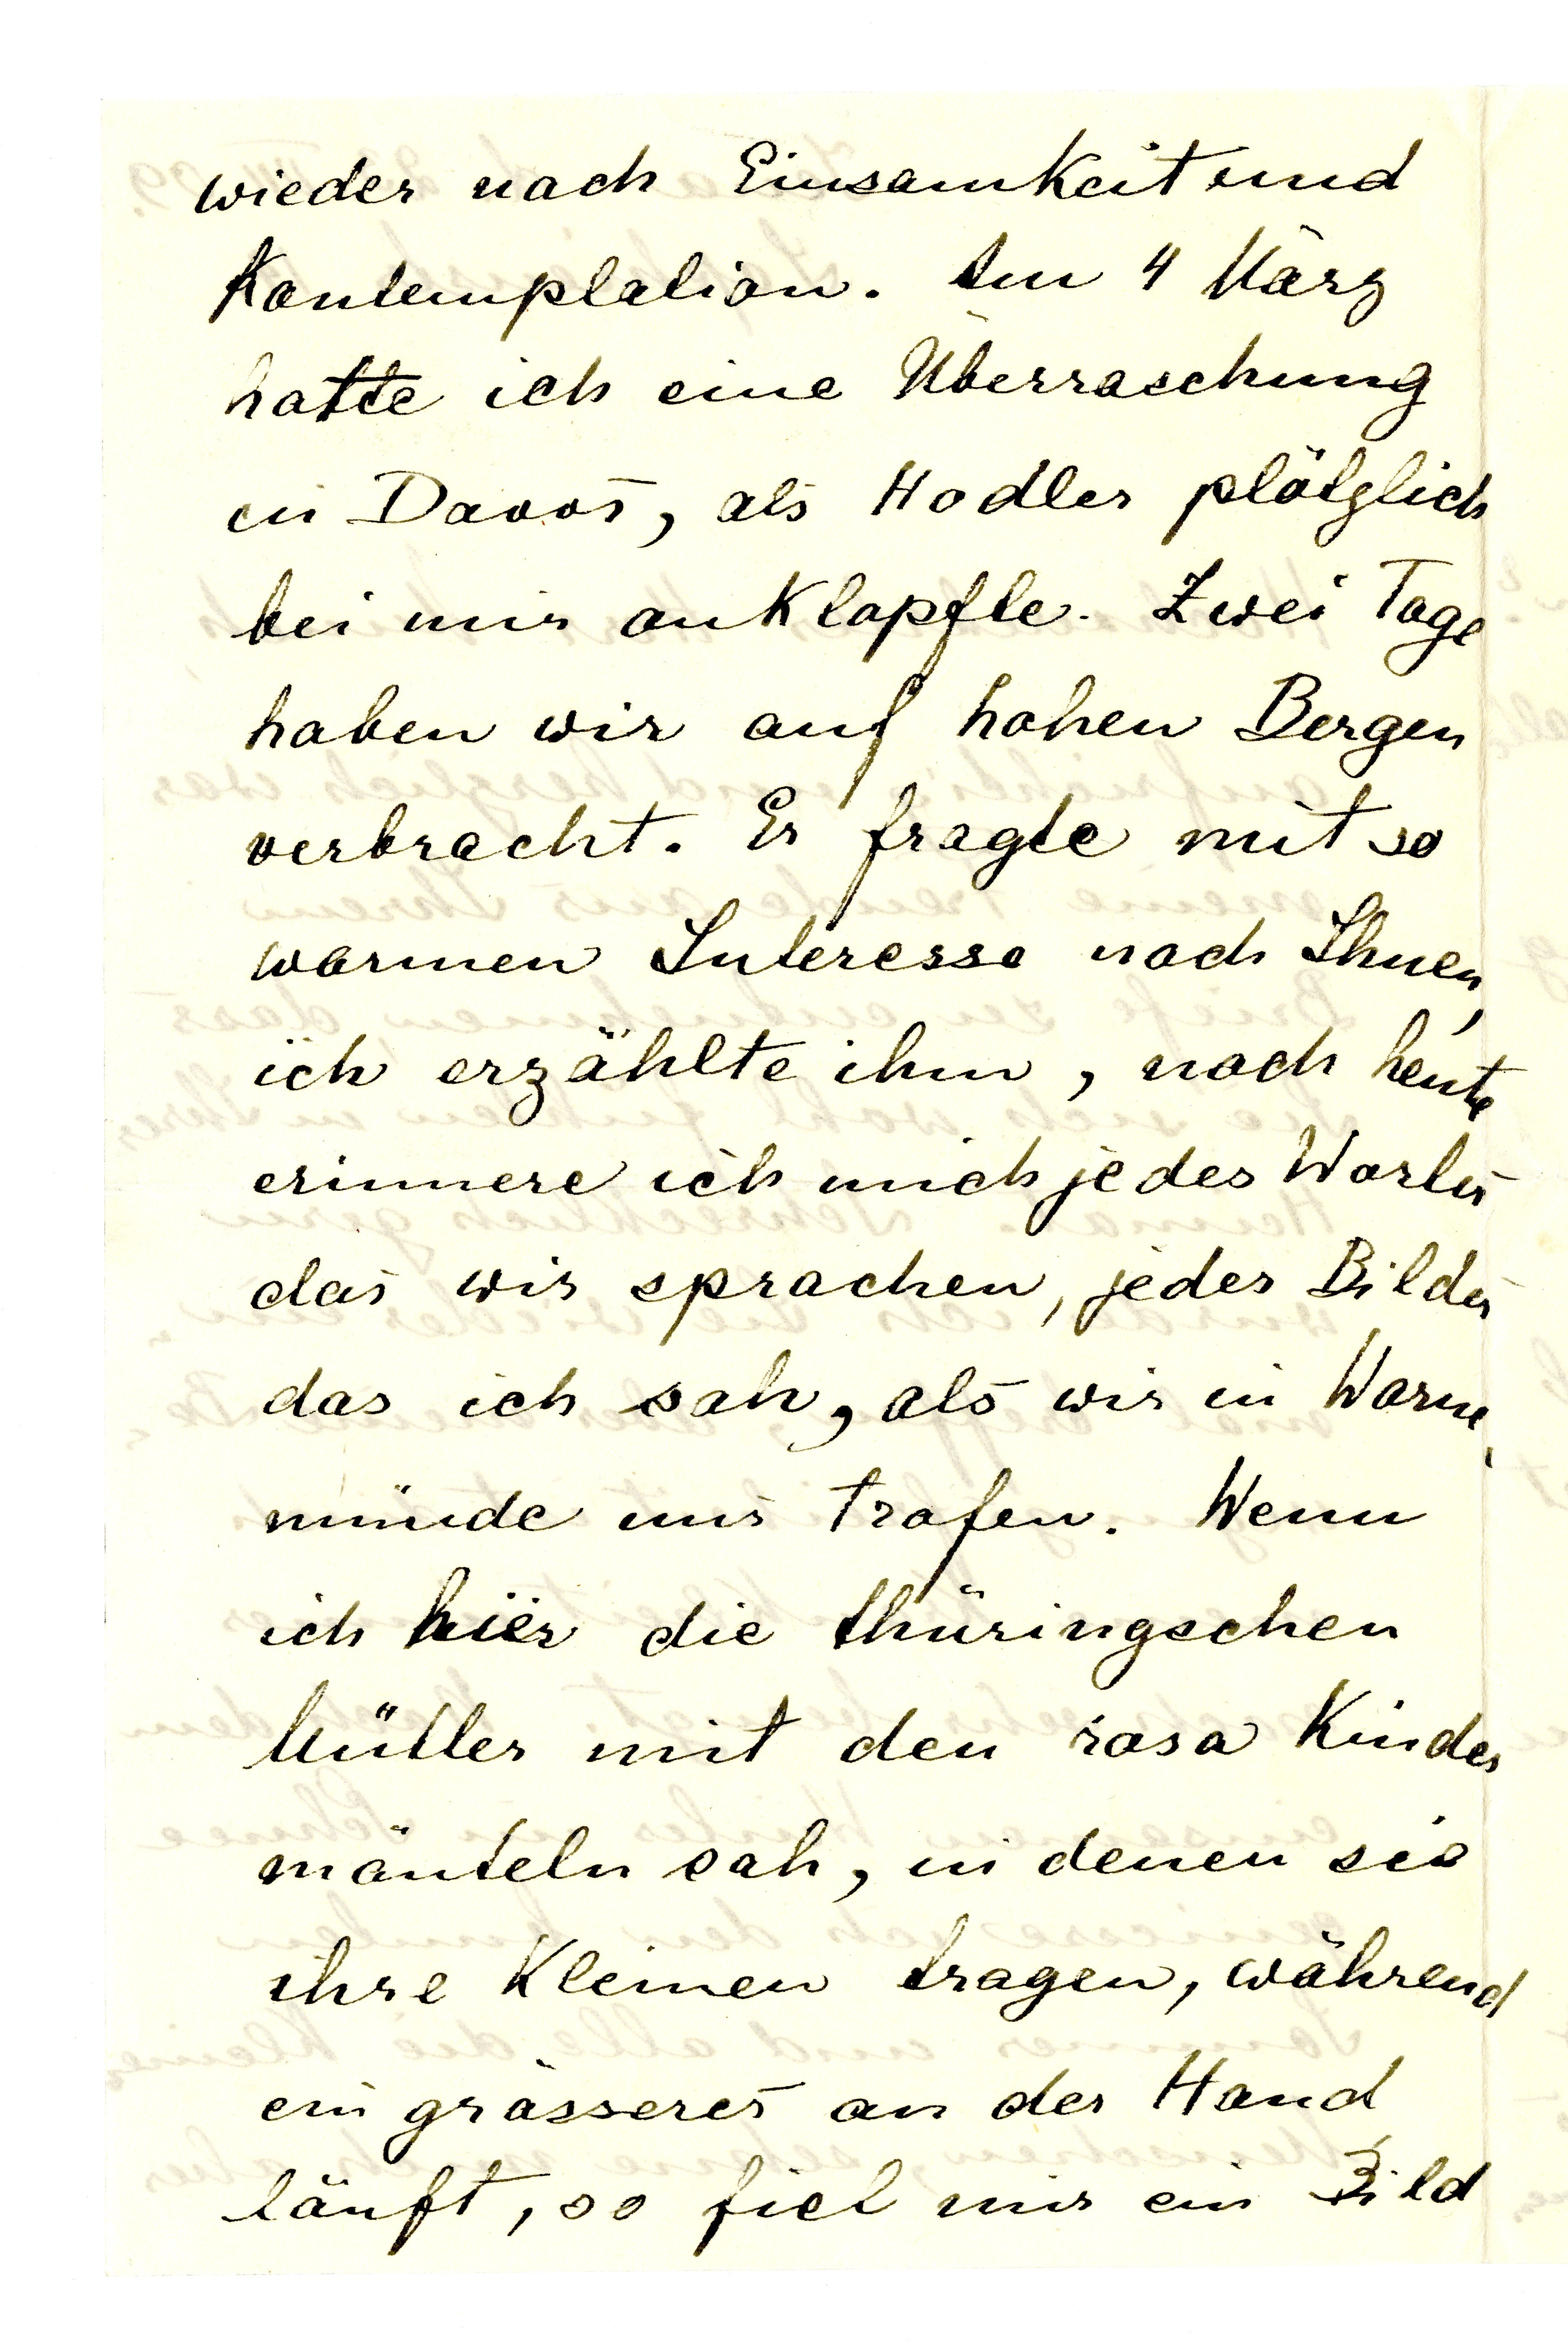 wieder nach Einsamkeit und
Kontemplation. Am 4 März
hatte ich eine Überraschung
in Davos, als Hodler plötzlich
bei mir anklopfte. Zwei Tage
haben wir auf hohen Bergen
verbracht. Er fragte mit so
warmen Interesse nach Ihnen,
ich erzählte ihm, noch heute
erinnere ich mich jedes Wortes
das wir sprachen, jedes Bildes
das ich sah, als wir in Warne
münde uns trafen. Wenn
ich hier die thüringschen
Mütter mit den rosa Kinder
mänteln sah, in denen sie
ihre Kleinen tragen, während
ein grösseres an der Hand
läuft, so fiel mir ein Bild